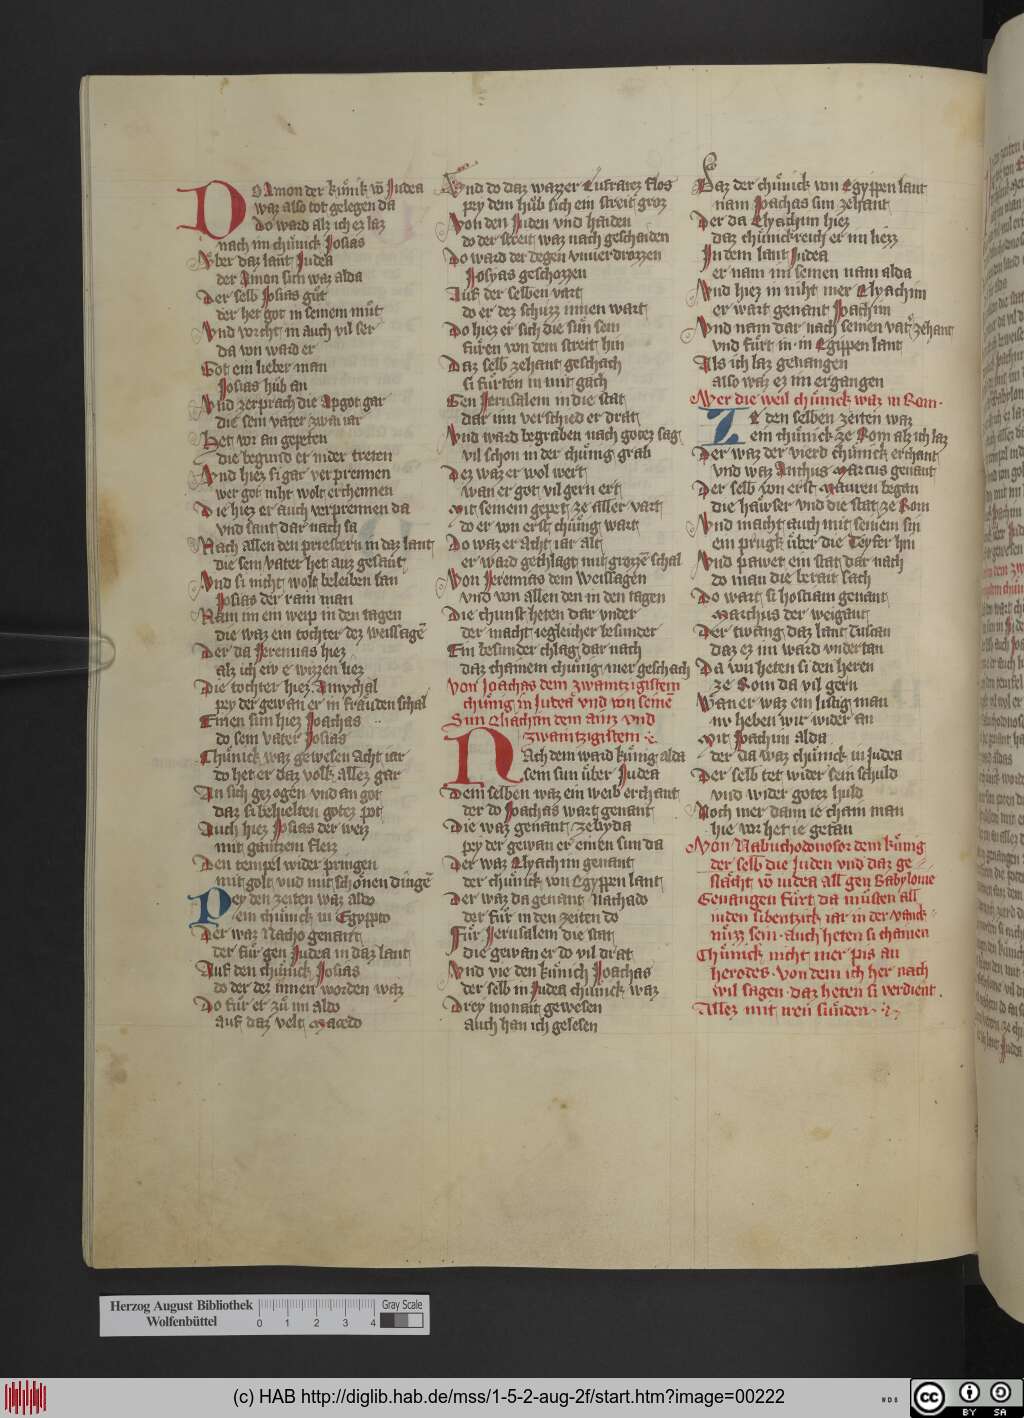 Do Amon der künik vō Judea
waz also tot gelegen da
do ward alz ich ez laz
nach im chünick Josias
Aber daz lant Judea
der Amon sun waz alda
Der selb Josias güt
der het got in seinem müt
Vnd vorcht in auch vil ser
da von ward er
Got ein lieber man
Josias hüb an
Vnd zerprach die Apgot gar
die sein vater zwai iar
Het vor an gepeten
die begund er nider treten
Vnd hiez si gar verprennen
wer got niht wolt erchennen
Die hiez er auch verprennen da
vnd sant dar nach sa
Nach allen den priestern in daz lant
die sein vater het auz gesant
Vnd si nicht wolt beleiben lan
Josias der rain man
Nam im ein weip in den tagen
die waz ein tochter dez weissagē
Der da Jeremias hiez
alz ich ew e wizzen liez
Die tochter hiez Amychal
pey der gewan er in frauden schal
Einen sun hiez Joachas
do sein vater Josias
Chünick waz gewesen Acht iar
do het er daz volk allez gar
An sich gezogen vnd an got
daz si behielten gotez pot
Auch hiez Josias der weiz
mit gantzem fleiz
Den tempel wider pringen
mit golt vnd mit schonen dingē
Pey den zeiten waz aldo
ein chünick in Egyppto
Der waz Nacho genant
der für gen Judea in daz lant
Auf den chünick Josias
do der dez innen worden waz
Do für er zü im aldo
auf daz velt Macedo
Vnd do daz wazzer Eufratez flos
pey dem hüb sich ein streit groz
Von den Juden vnd haiden
do der streit waz nach geschaiden
Do ward der degen vnuerdrozzen
Josyas geschozzen
Auf der selben vart
do er dez schuzz innen wart
Do hiez er sich die sün sein
füren von dem streit hin
Daz selb zehant geschach
si fürten in mit gach
Gen Jerusalem in die stat
dar inn verschied er drat
Vnd ward begraben nach gotez sag
vil schon in der chünig grab
Dez waz er wol wert
wan er got vil gern ert
Mit seinem gepet ze aller vart
do er von erst chünig wart
Do waz er Acht iar alt
er ward gechlagt mit grozzē schal
Von Jeremias dem Weissagen
vnd von allen den in den tagen
Die chunst heten dar vnder
der macht iegleicher besunder
Ein besunder chlag dar nach
daz chainem chünig mer geschach
Von Joachas dem zwaintzigistem
chünig in Judea vnd von seine
Sun Eliachim dem ainz vnd
zwaintzigistem
Nach dem ward künig alda
sein sun über Judea
Dem selben waz ein weib erchant
der do Joachas wart genant
Die waz genant zebyda
pey der gewan er einen sun da
Der waz Elyachim genant
der chünick von Egyppen lant
Der waz da genant Nachado
der für in den zeiten do
Für Jerusalem die stat
die gewan er do vil drat
Vnd vie den künich Joachas
der selb in Judea chünick waz
Drey monait gewesen
auch han ich gelesen
Daz der chünick von Egyppen lant
nam Joachas sun zehant
Der da Elyachim hiez
daz chünickreich er im liezz
In dem lant Judea
er nam im seinen nam alda
Vnd hiez in niht mer Elyachim
er wart genant Joachim
Vnd nam dar nach seinen vat' zehant
vnd fürt in in Egyppen lant
Als ich laz geuangen
also waz ez im ergangen
Wer die weil chünick waz in Rom
Ze den selben zeiten waz
ein chünick ze Rom alz ich laz
Der waz der vierd chünick erchant
vnd waz Anchus Marcus genant
Der selb von erst Mauren began
die hawser vnd die stat ze Rom
Vnd macht auch mit seinem sin
ein prugk über die Teyfer hin
Vnd pawet ein stat dar nach
do man die berait sach
Do wart si hostiam genant
Marchus der weigant
Der twang daz lant Tuscan
daz ez im ward vndertan
Da von heten si den heren
ze Rom da vil gern
Wan er waz ein listig man
nv heben wir wider an
Mit Joachim alda
der da waz chünick in Judea
Der selb tet wider sein schuld
vnd wider gotez huld
Noch mer dann ie chain man
hie vor het ie getan
Von Nabuchodonosor dem künig
der selb die Juden vnd daz ge
slächt vō iudea all gen Babylonie
Geuangen fürt da müsten all
inden sibentzick iar in der vanck
nüzz sein. auch heten si chainen
Chünick nicht mer pis an
herodes. von dem ich her nach
wil sagen. daz heten si verdient
Allez mit iren sünden
Herzog August Bibliothek
Wolfenbüttel
0 1 2 3 4
Gray Scale
(c) HAB http://diglib.hab.de/mss/1-5-2-aug-2f/start.htm?image=00222
WDB
cc BY SA